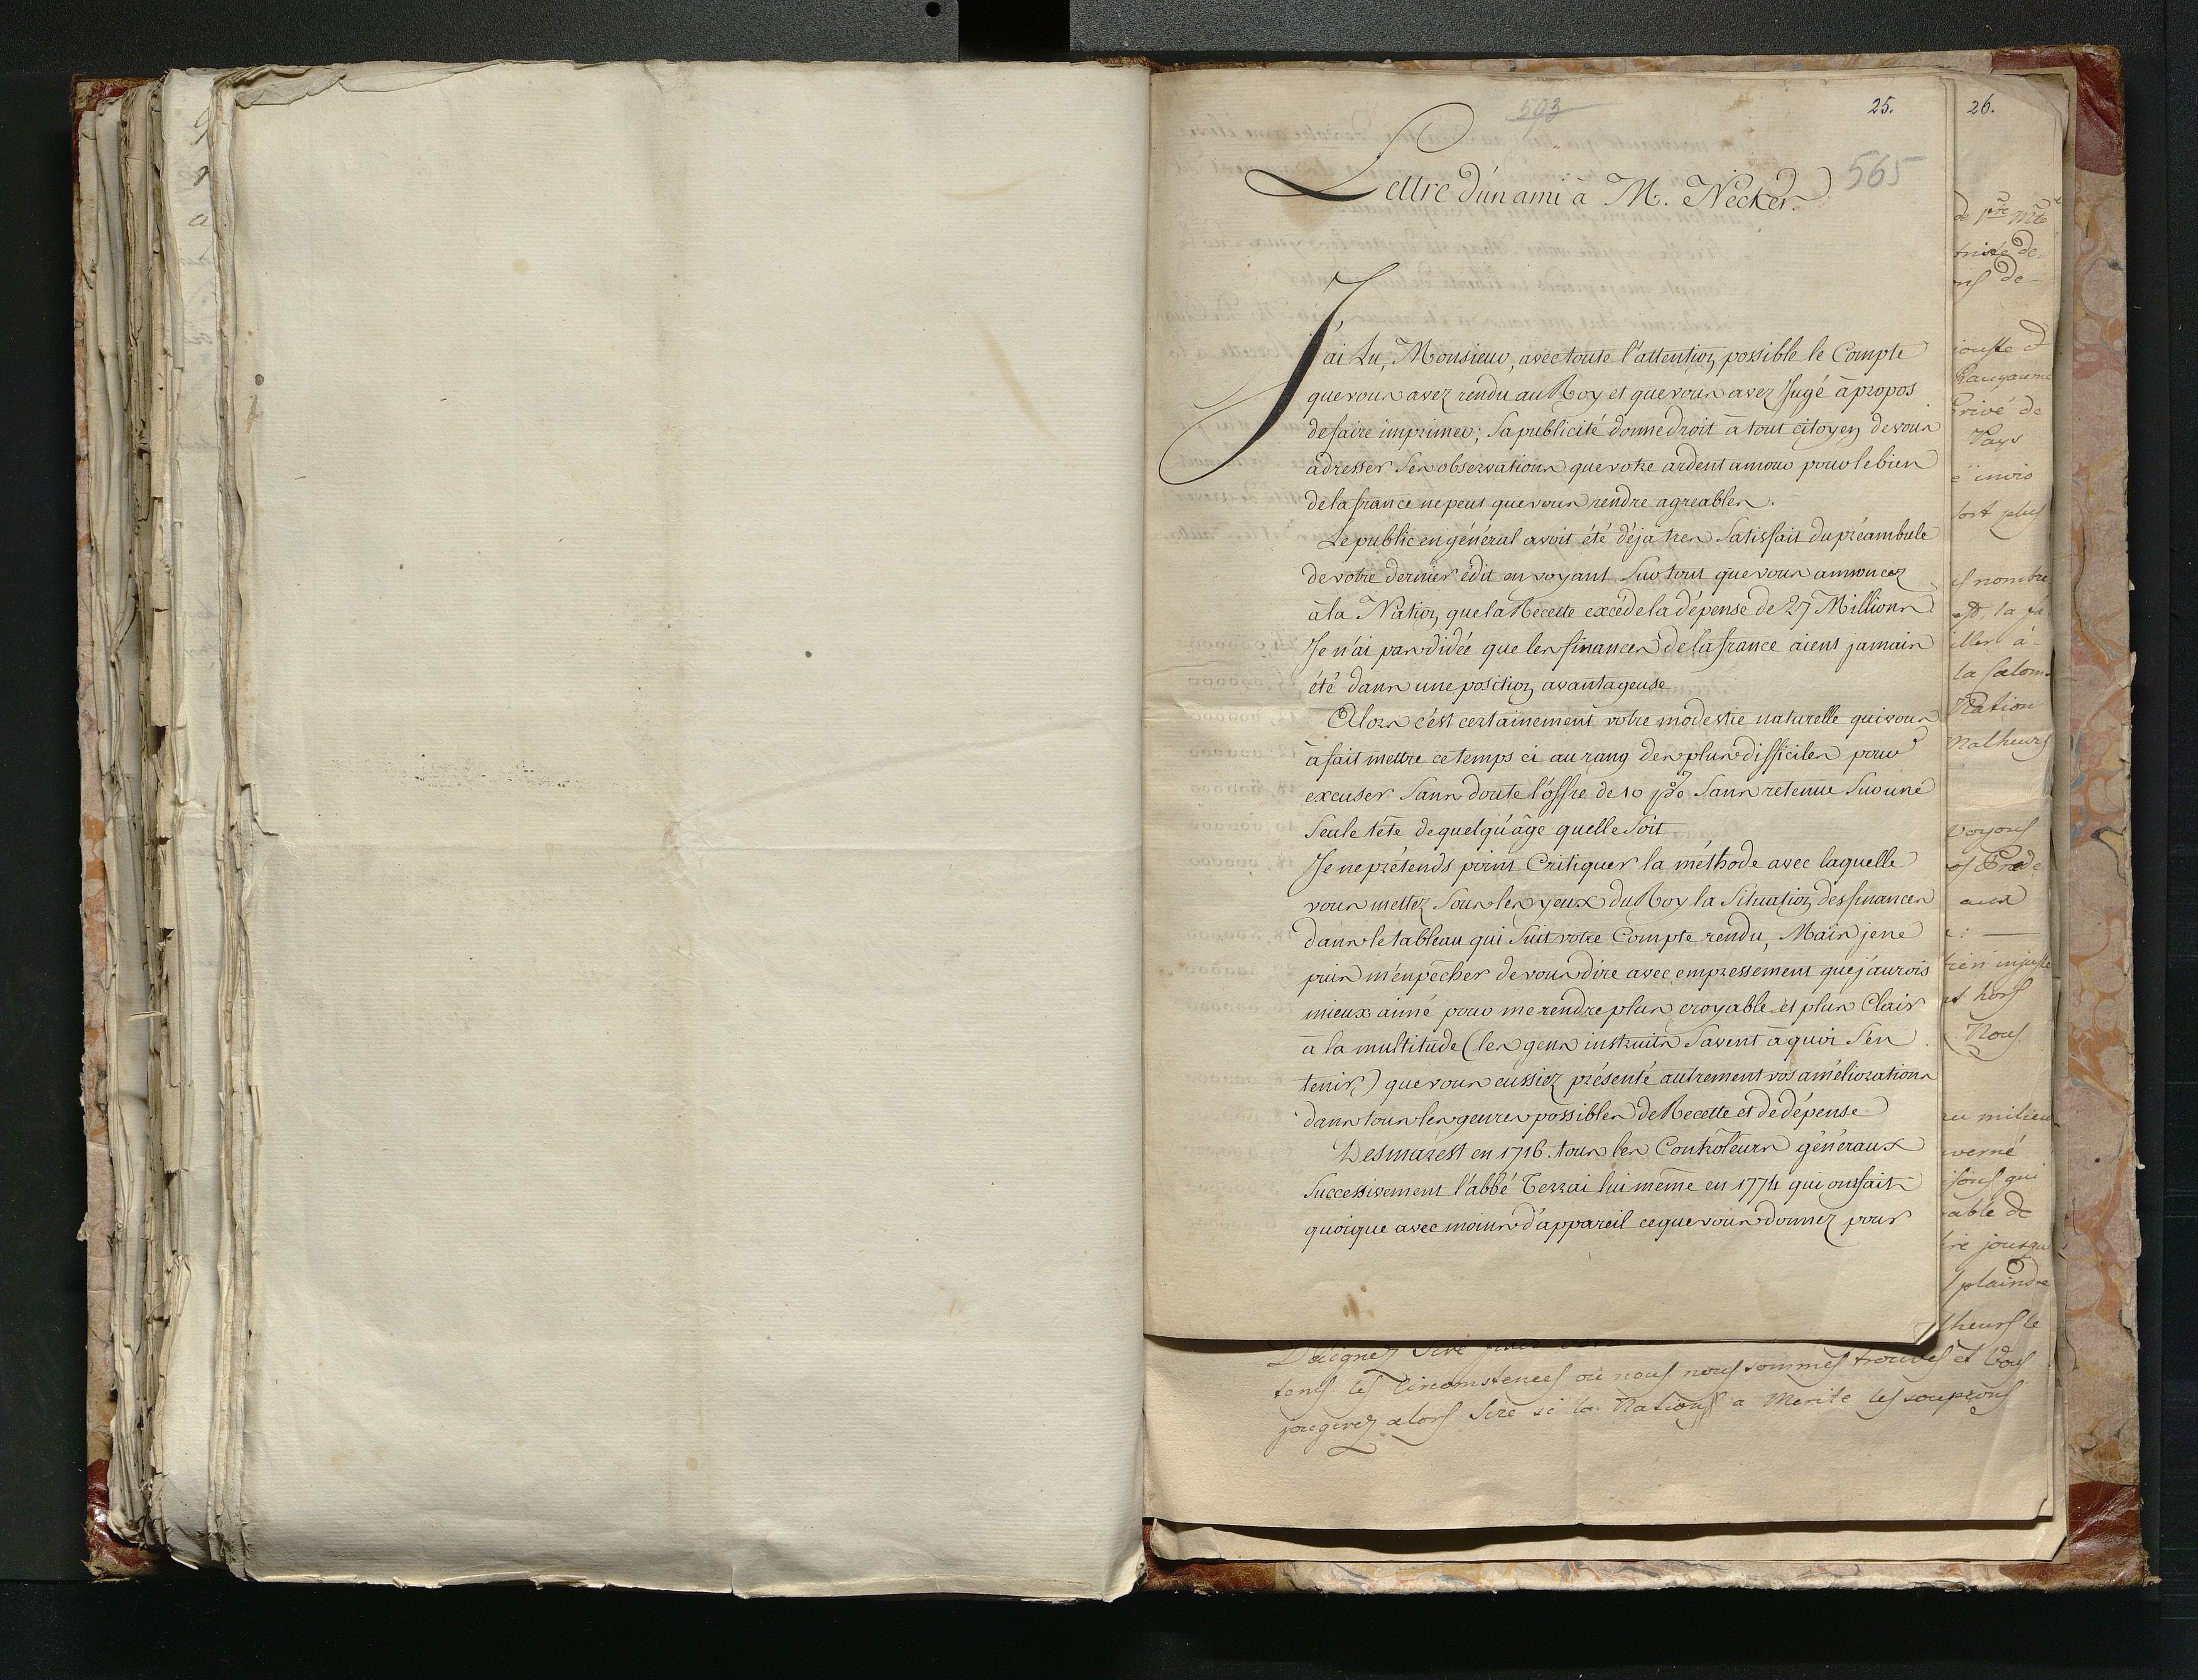 593
25.
565
Lettre d'un ami à M. Necker.
J'ai Lu, Monsieur, avec toute l'attention possible le Compte
que vous avez rendu au Roy et que vous avez Jugé à propos
de faire imprimer; Sa publicité donne droit à tout citoyen de vous
adresser Ses observations que votre ardent amour pour le bien
de la france ne peut que vous rendre agreables.
Le public en général avoit été déja tres Satisfait du préambule
de votre dernier édit en voyant Sur tout que vous annoncez
à la Nation que la Recette excéde la dépense de 27 Millions
Je n'ai pas d'idée que les finances de la france aient jamais
été dans une position avantageuse
Alors c'est certainement votre modestie naturelle qui vous
à fait mettre ce temps ci au rang des plus difficiles pour
excuser Sans doute l'offre de 10 p% Sans retenue Sur une
Seule tête de quelqu'âge quelle Soit
Je ne prétends point Critiquer la méthode avec laquelle
vous mettez Sous les yeux du Roy la Situation des finances
dans le tableau qui Suit votre Compte rendu, Mais je ne
puis m'enpêcher de vous dire avec empressement que j'aurois
mieux aimé pour me rendre plus croyable et plus Clair
a la multitude (les gens instruits Savent à quoi S'en
tenir,) que vous eussiez présenté autrement vos améliorations
dans tous les genres possibles de Recette et de dépense
Desmarest en 1716. tous les Contrôleurs généraux
Successivement l'abbé Terrai lui même en 1774 qui ont fait
quoique avec moins d'appareil ce que vous donnez pour
26.
de
de
ouste et
Rauyaume
privé de
Pays
invio
sort plus
nombre
la
iller à
la
Nation
Malheurs
voyons
Prede
aux
rien injuste
et hors
Nous
au milieu
verné
sons qui
able de
ire jousqu
plaindre
heurs le
Daignez Sire
tens les Circomstences où nous nous sommes trouvés et Vous
jougerez alors Sire si la Nations a Merite les soupzons